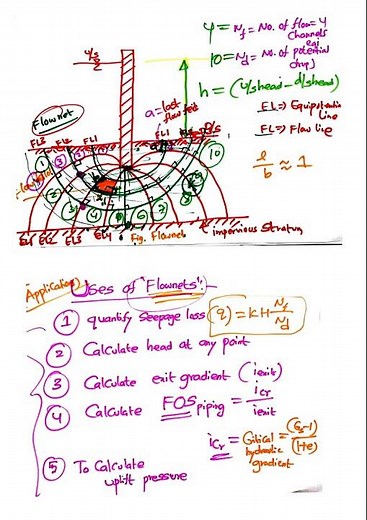 4 = Nf = No. of flow = 4
channels
10 = Nd = No. of potential
drop
h = (u/s head - d/s head)
EL => Equipotential
Line
FL => Flow line
l/b ≈ 1
u/s
Flownet
a = last
flow
EL3 EL2 EL1
EL1
d/s
1
2
3
4
5
6
7
10
EL1 EL2 EL3 EL4 Fig. Flownets
impervious Stratum
Application
Uses of "Flownets":-
1 quantify Seepage loss (q) = KH Nf/Nd
2 Calculate head at any point
3 Calculate exit gradient (iexit)
4 Calculate FOS piping = icr/iexit
icr = Critical hydraulic gradient = (Gs-1)/(1+e)
5 To Calculate
uplift pressure